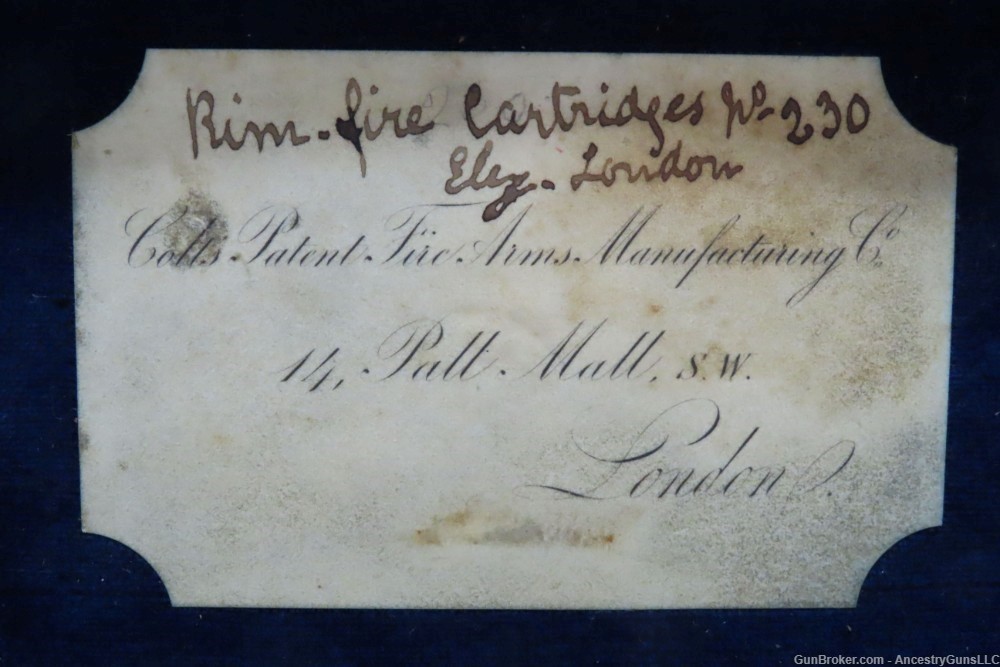 Rim-fire Cartridges No 230
Eley. London
Colts Patent Fire Arms Manufacturing Co.
14, Pall Mall, S.W.
London.
GunBroker.com - AncestryGunsLLC